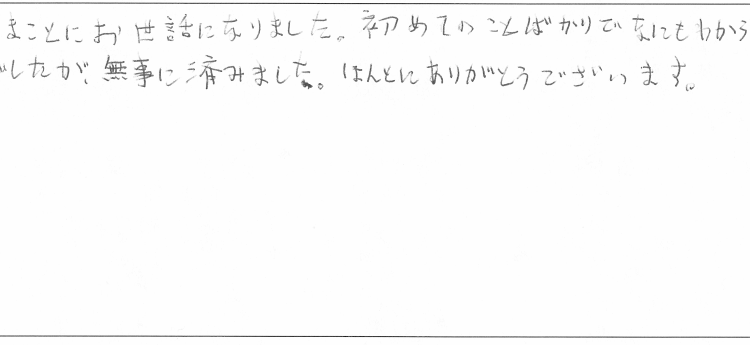 まことにお世話になりました。初めてのことばかりでなにもわから
したが、無事に済みました。ほんとにありがとうございます。